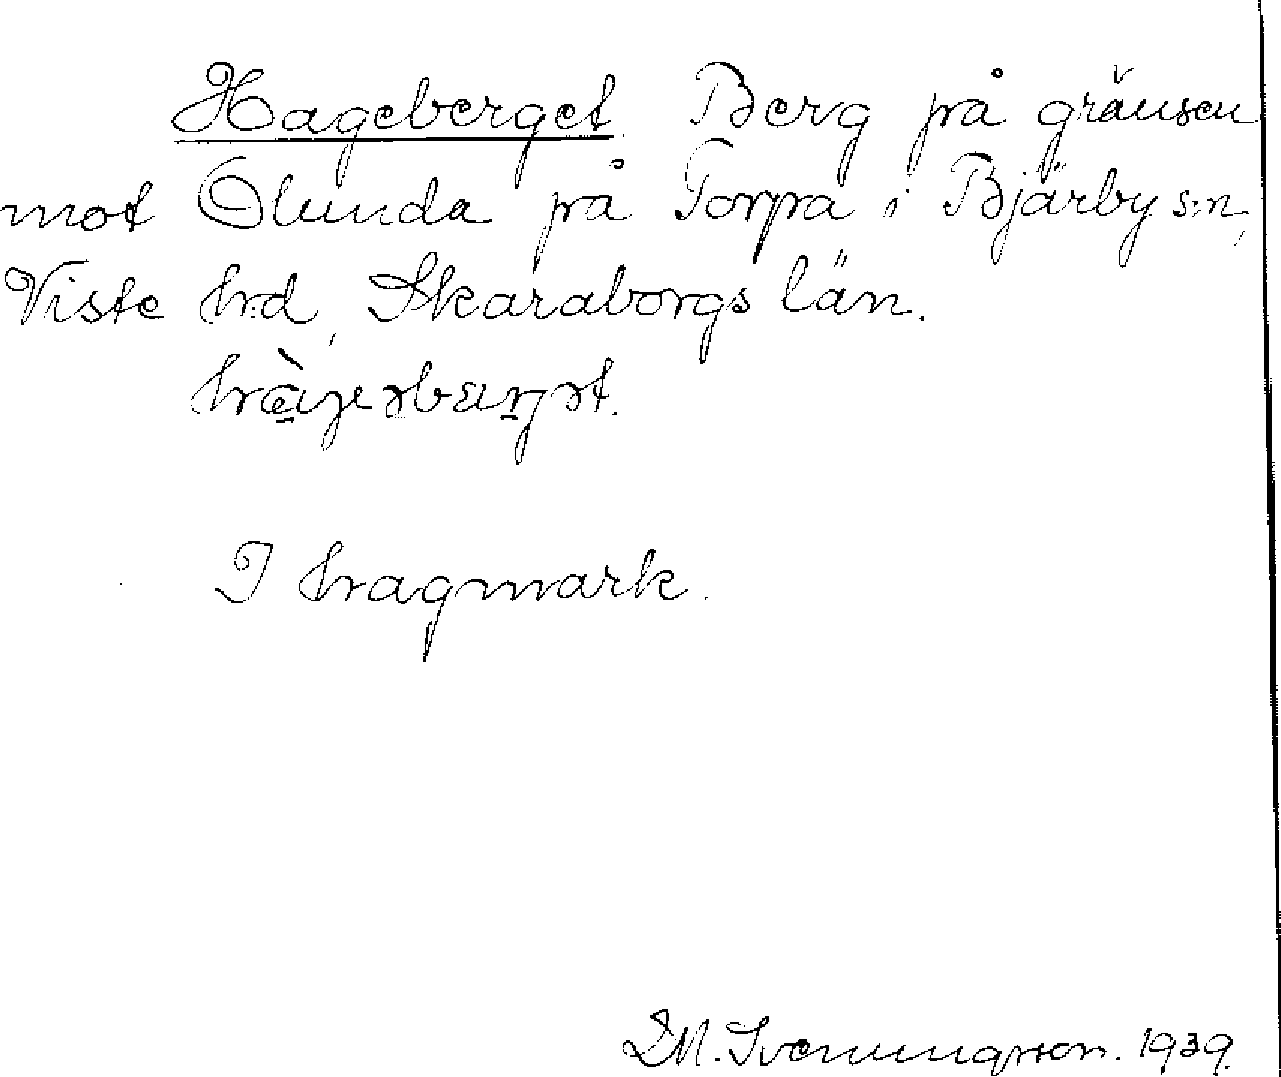 Hageberget. Berg på gränsen
mot Ölunda på Torpa i Bjärby s:n,
Viste h:d, Skaraborgs län.
I hagmark.
Svenungsson. 1939.